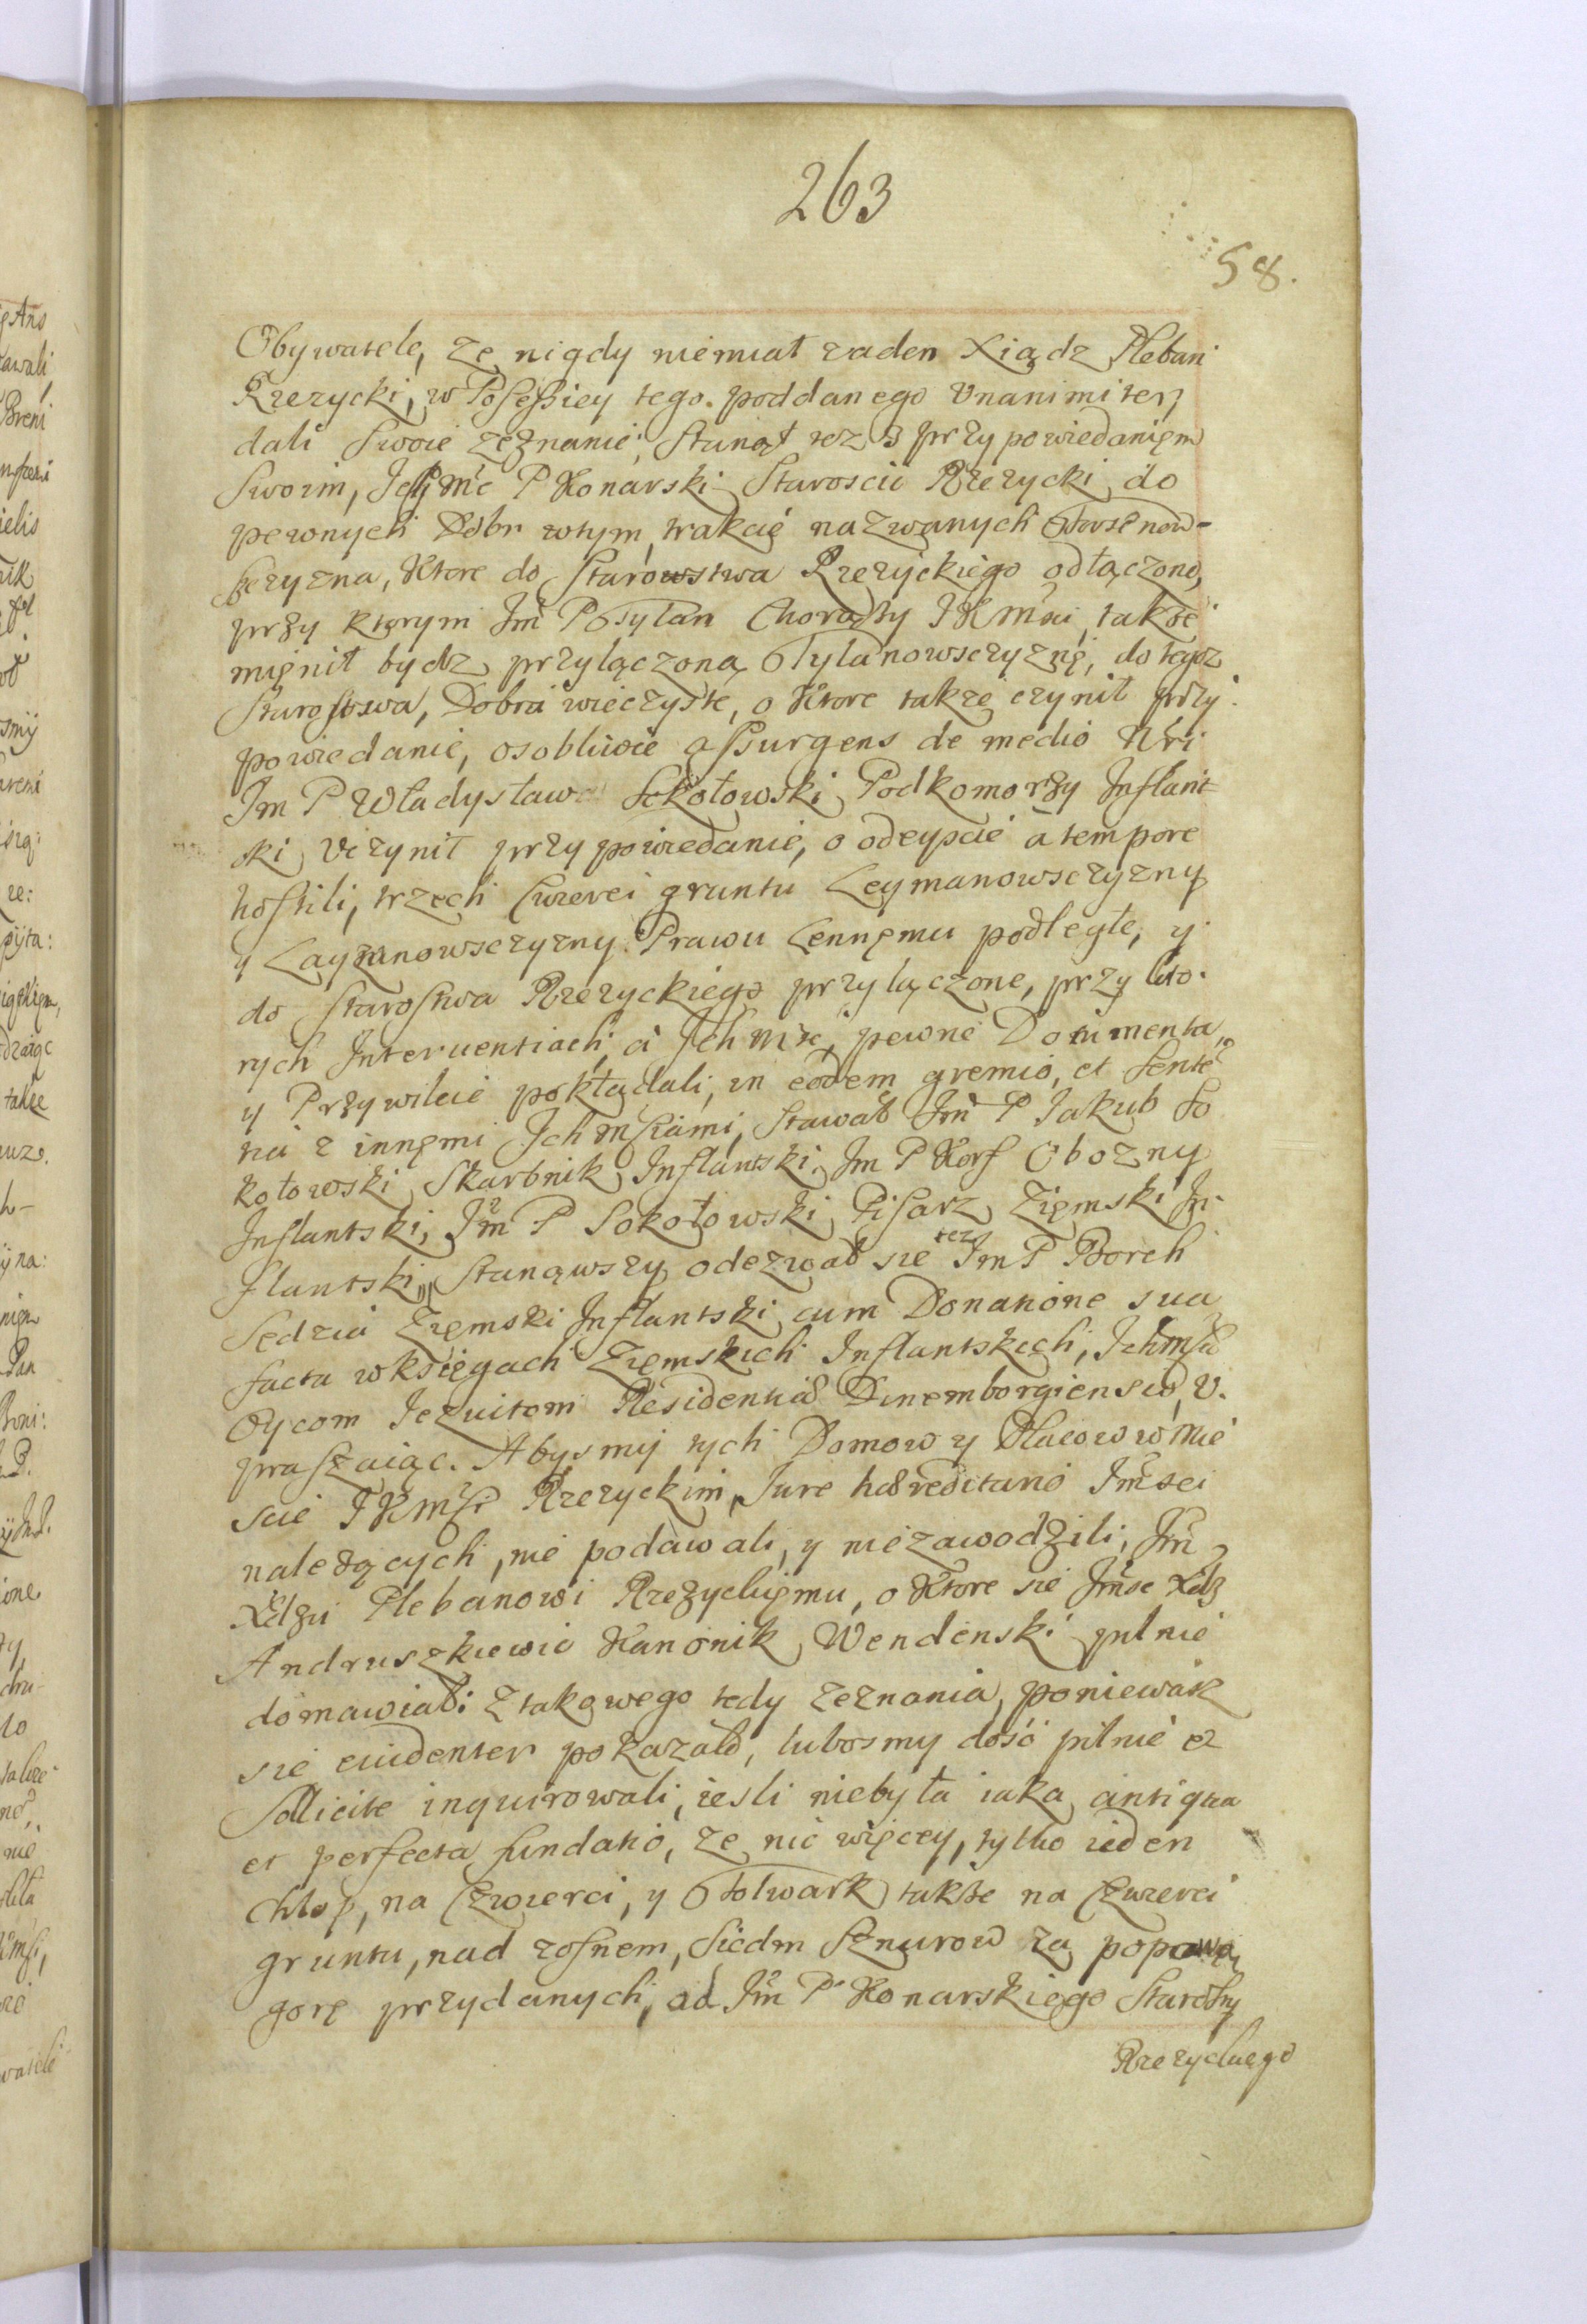 263
58.
Obywatele, ze nigdy niemiał zaden Xiądz Plebani
Rzezycki, w Posessiey tego. poddanego Unanimiter,
dali Swoie zeznanie; Stanął tez z przypowiedanięm
Swoim, Jeg Mc P Konarski Staroscic Rzezycki do
pewnych Dobr wtym trakcie nazwanych
sczyzna, Ktore do Starowstwa Rzezyckiego odłączono,
przy ktorym Jm̃ P Tylan Chorąży JKMsci, także
mięnił bydz przyłączoną Tylanowsczyznę, do tegoz
Starostwa, Dobra wieczyste, o Ktore takze czynił przy:
powiedanie, osobliwie assurgens de medio Nri
Jm P Władysław Sokołowski Podkomorzy Inflant-
ski Uczynił przypowiedanie, o odeyscie a tempore
hostili, trzech Czwerci gruntu Leymanowsczyzny
y Layzanowsczyzny Prawu Lennęmu podległe, y
do Starostwa Rzezyckiego przyłączone, przy kto-
rych Interuentiach, a Jchmsc, pewne Documenta,
y Przywileie pokładali, in eodem gremio, et Sente
na z innęmi Jchmsciami, Stawał Jm̃ P Jakub So
kołowski Skarbnik Inflantski, Jm P Korf Obozny
Inflantski, Jm̃ P Sokołowski Pisarz Zięmski In-
flantski, Stanąwszy odezwał sie tez Jm P Borch
Sedzia Zięmski Inflantski cum Donatione sua
facta w księgach Zięmskich Inflantskich, Jchmsc
Oycom Jezuitom Residentiæ Dinemborgiensis, U.
praszaiąc. Abysmy tych Domow y Placow w Mie
scie JKMsci Rzezyckim, Jure hæreditario Jm̃sci
należących, nie podawali, y niezawodzili, Jm̃
Xdzu Plebanowi Rzezyckięmu, o Ktore sie Jm̃sc Xdz
Andruszkiewic Kanonik Wendenski pilnie
domawiał: Z takowego tedy zeznania, poniewasz
sie euidenter pokazało, lubosmy dość pilnie et
Sollicite inquirowali, iesli niebyła iaka antiqua
et perfecta fundatio, ze nic więcey, tylko ieden
chłop, na Czwierci, y Folwark także na Czwerci
gruntu, nad rosnem, Siedm Sznurow za poprawę
gorę przydanych, ad Jm̃ P Konarskiego Starosty
Rzezyckiego